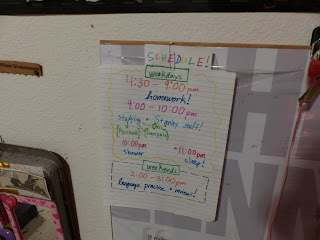 SCHEDULE!
weekdays
4:30 - 9:00pm
homework!
9:00 - 10:00pm
studying + Stanley stuffs!
10:00pm
shower
~11:00pm
sleep!
weekends
2:00 - 3:00pm
language practice + review!